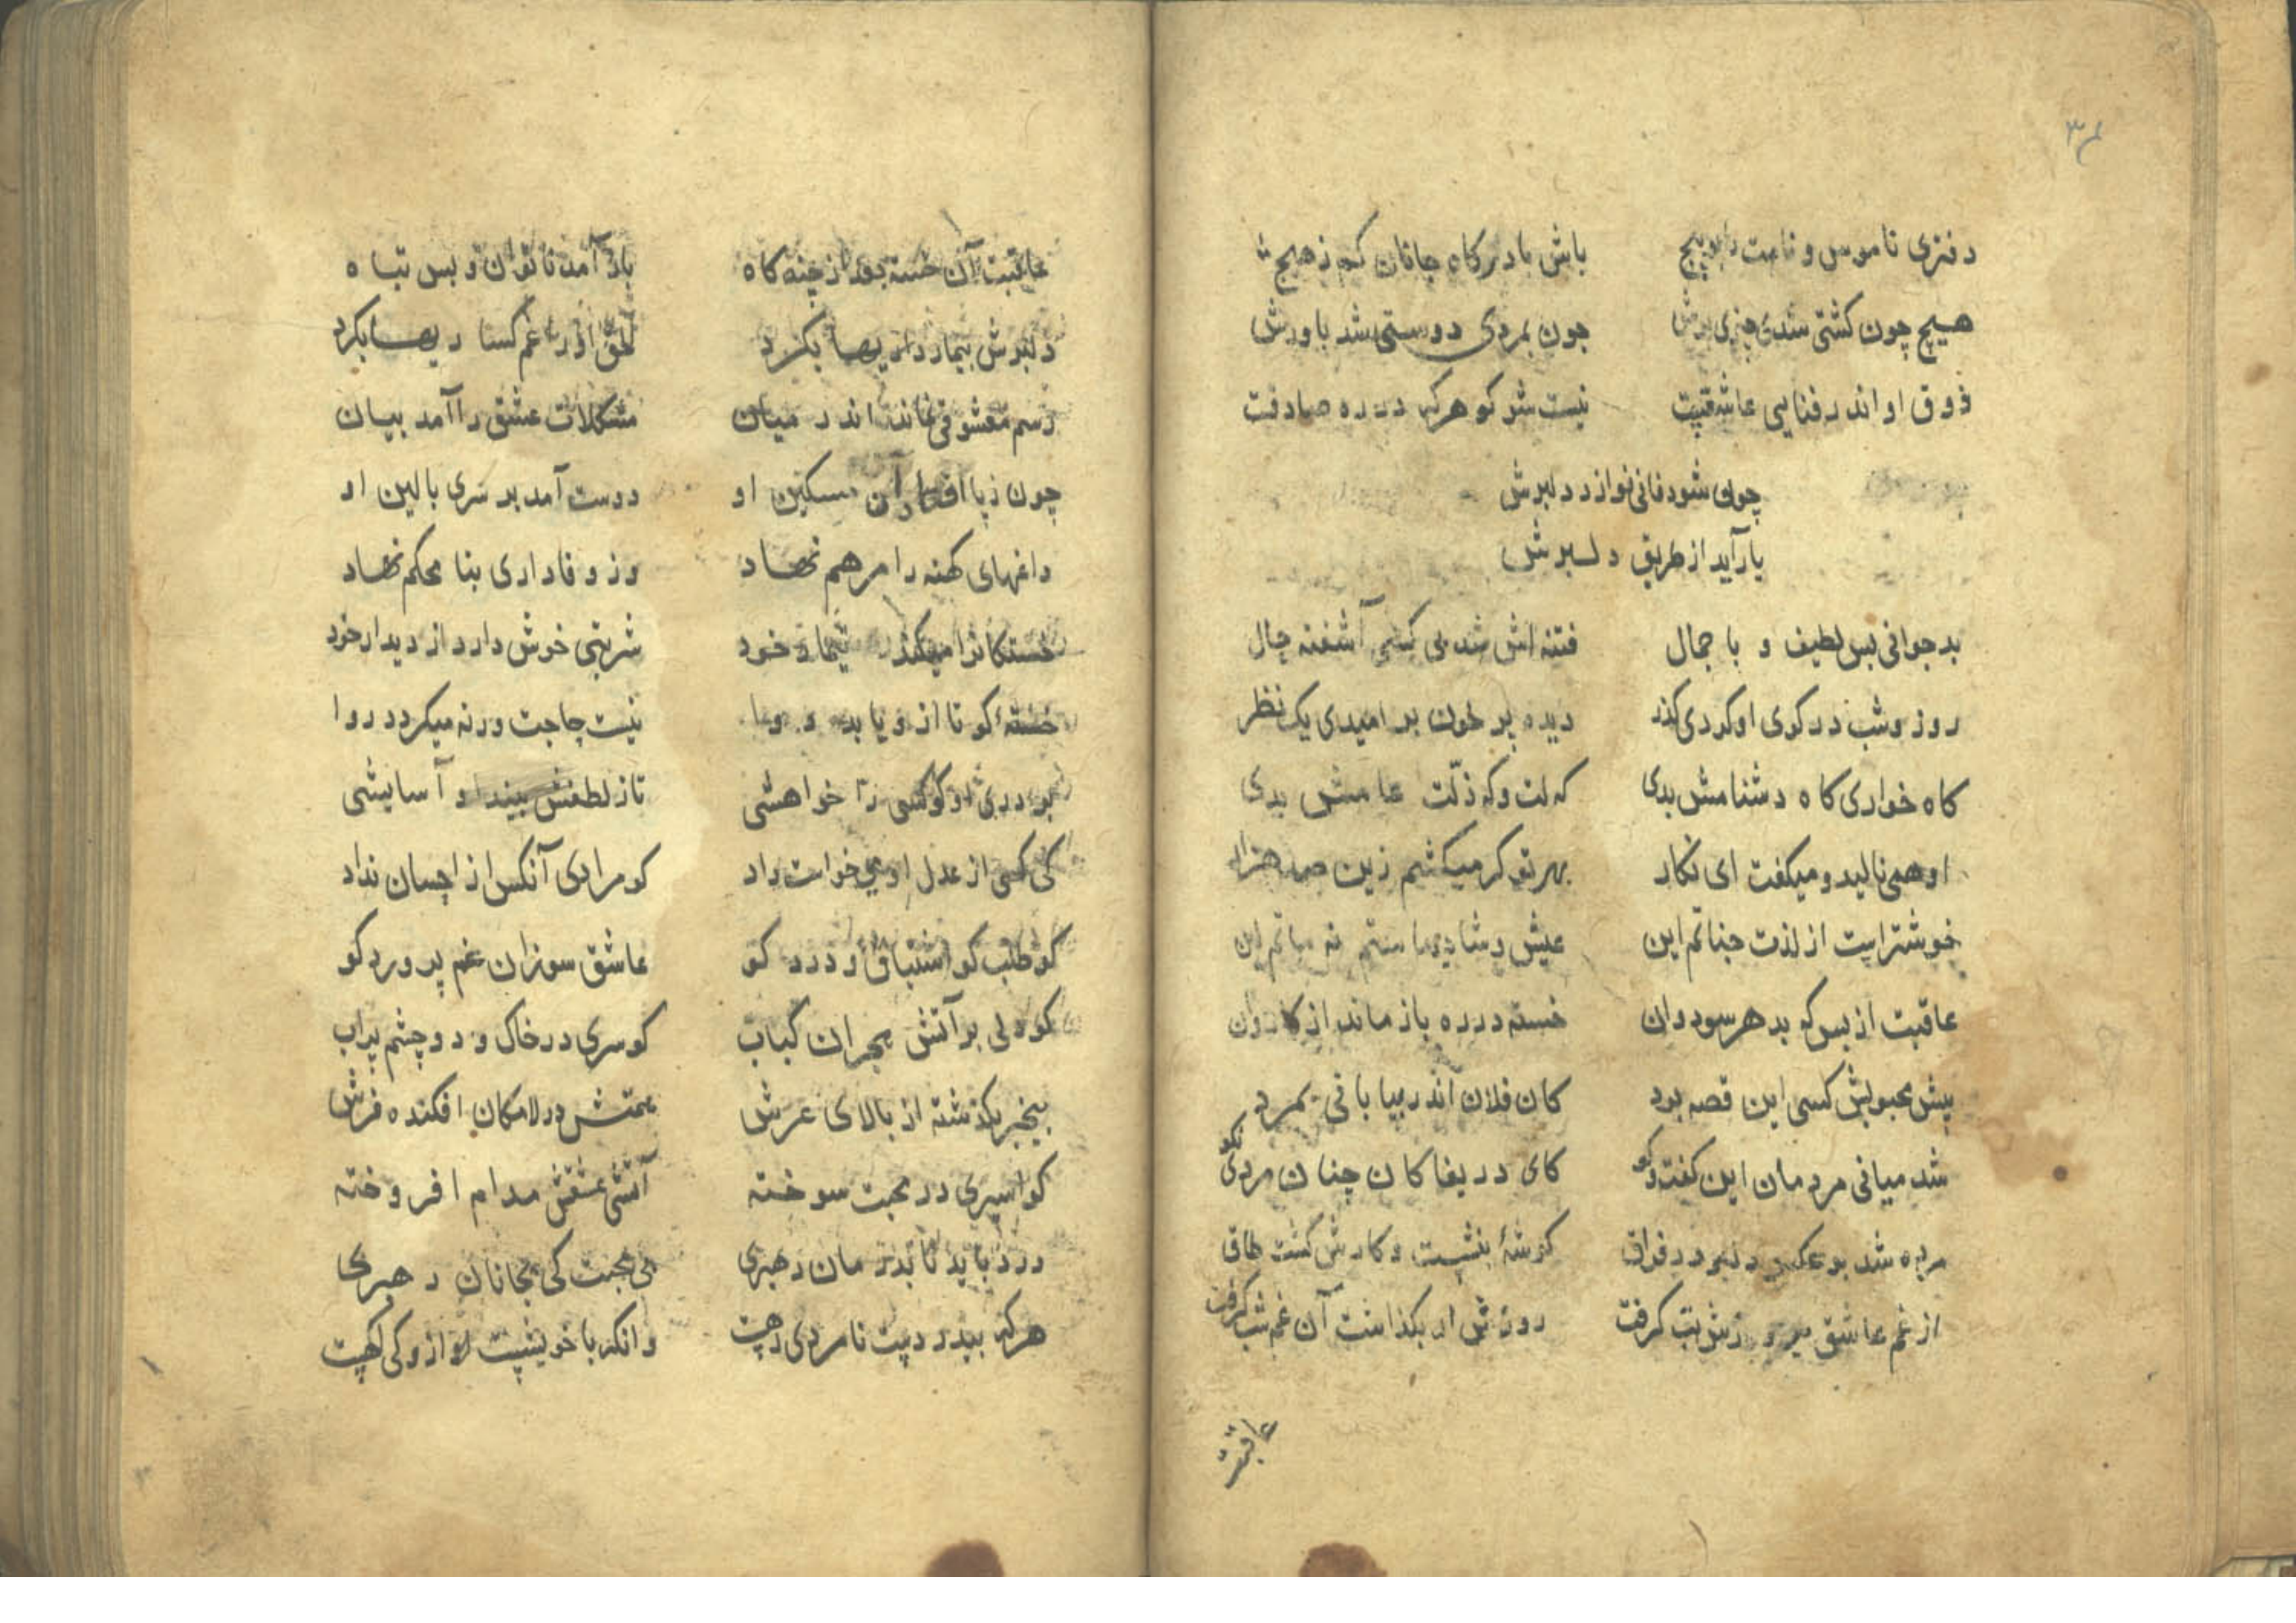 ۳۴
دفتری ناموس و نامت را بپیچ باش با درکاه جانان کم ز هیچ
هیچ چون کشتی شدی چیزی برش چون بمردی دوستی شد باورش
ذوق او اندر فنایی عاشقیت نیست شو کو هرکه در ره صادقت
چون شود فانی نوازد دلبرش
یار آید از طریق دلبرش
بد جوانی بس لطیف و با جمال فتنه اش شد کسی آشفته حال
روز و شب در کوی او کردی کذر دیده پر خون بر امیدی یک نظر
کاه خواری کاه دشنامش بدی که لت و که ذلّت عامش بدی
او همی نالید و میکفت ای نکار بهر تو کر میکشم زین صد هزار
خوشتر ایت از لذت جناتم این عیش و شادی نه ماتم این
عاقبت از بس که بد هر سو دوان خسته در ره باز ماند از کاروان
پیش محبوبش کسی این قصه برد کان فلان اندر بیابانی بمرد
شد میانی مردمان این کفت و کو کای دریغا کان چنان مردی نکو
مرده شد بر دلبر در فراق کوشهٔ بنشست و کارش کشت طاق
از غم عاشق تب کرفت روزش بکذاشت آن غم شب کرفت
عاقبت
عاقبت آن خسته بعد از چند کاه باز آمد ناتوان و بس تباه
دلبرش بیمار داریها بکرد خلق او را غم کساریها بکرد
رسم معشوقی نماند اندر میان مشکلات عشق را آمد بیان
چون ز پا افتاد آن مسکین او دوست آمد بر سری بالین او
داغهای کهنه را مرهم نهاد وز وفاداری بنا محکم نهاد
خستکانرا میکند تیمار خود شربتی خوش دارد از دیدار خود
خستهٔ کو تا ازو یابد دوا نیست حاجت ورنه میکردد روا
بر دری او کو کسی را خواهشی تا ز لطفش بیند او آسایشی
کی کسی از عدل او می خواست داد کو مرادی آنکس از احسان نداد
کو طلب کو اشتیاق و درد کو عاشق سوزان غم پرورد کو
کو دلی بر آتش هجران کباب کو سری در خاک و دو چشم پراب
بیخبر بکذشته از بالای عرش همتش در لامکان افکنده فرش
کو اسیری در محبت سوخته آتشی عشقش مدام افروخته
درد باید تا بدرمان ره بری بی محبت کی بجانان ره بری
هرکه بیدردیت نامردی رهیت وانکه با خویشیت او از وکی اکهیت